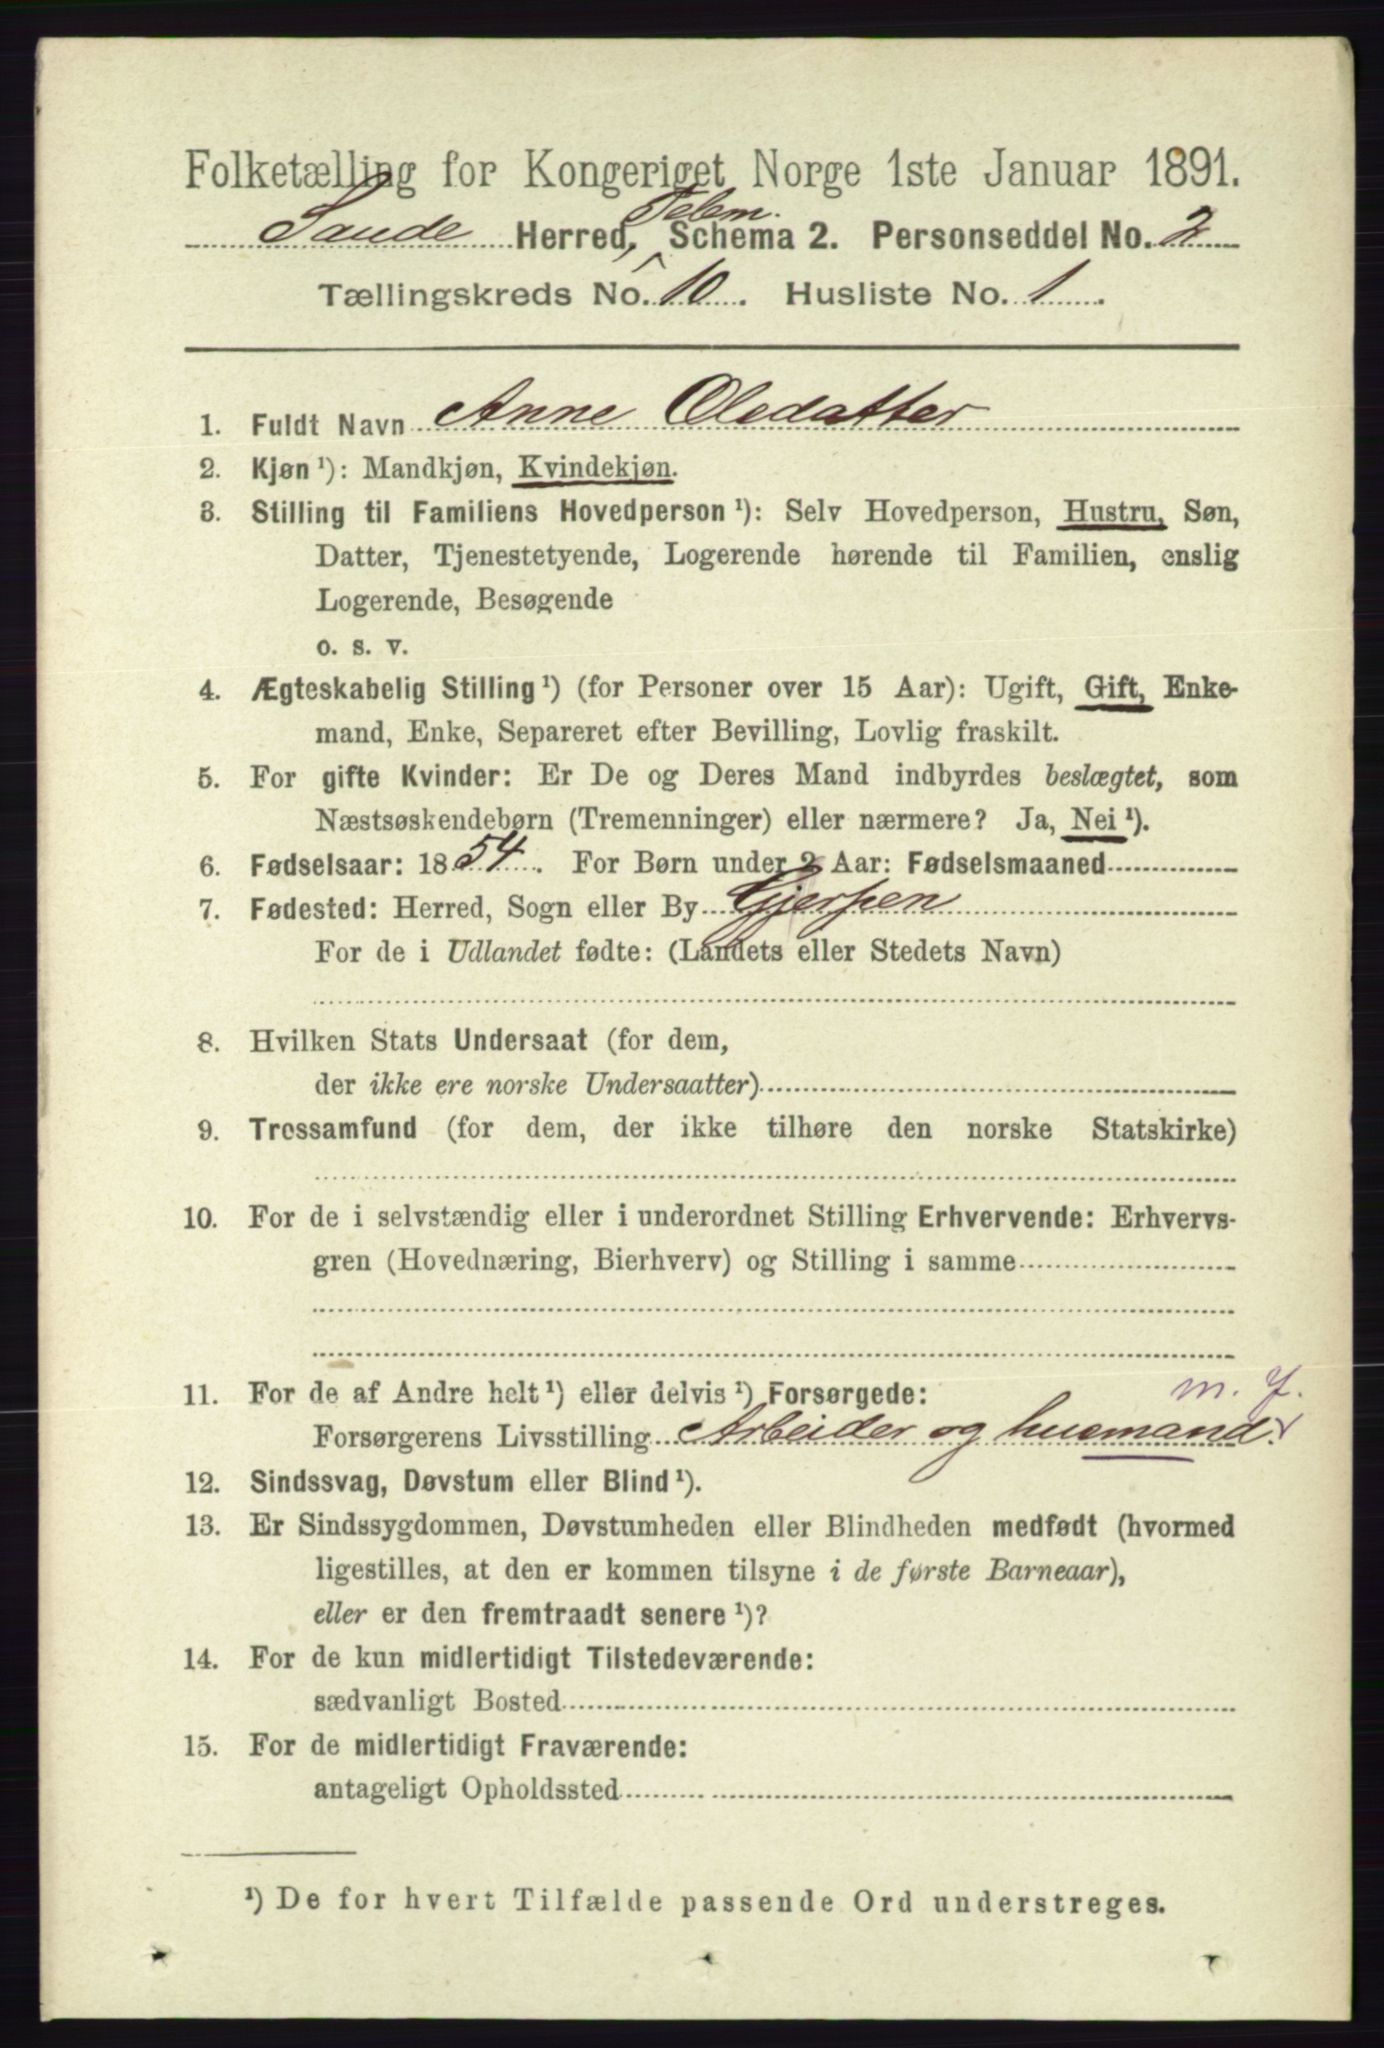 Folketælling for Kongeriget Norge 1ste Januar 1891.
Telem.
Saude Herred, Schema 2. Personseddel No. 2
Tællingskreds No. 10. Husliste No. 1.
1. Fuldt Navn Anne Oledatter
2. Kjøn ¹): Mandkjøn, Kvindekjøn.
3. Stilling til Familiens Hovedperson ¹): Selv Hovedperson, Hustru, Søn,
Datter, Tjenestetyende, Logerende hørende til Familien, enslig
Logerende, Besøgende
o. s. v.
4. Ægteskabelig Stilling ¹) (for Personer over 15 Aar): Ugift, Gift, Enke-
mand, Enke, Separeret efter Bevilling, Lovlig fraskilt.
5. For gifte Kvinder: Er De og Deres Mand indbyrdes beslægtet, som
Næstsøskendebørn (Tremenninger) eller nærmere? Ja, Nei ¹).
6. Fødselsaar: 1854. For Børn under 2 Aar: Fødselsmaaned
7. Fødested: Herred, Sogn eller By Gjerpen
For de i Udlandet fødte: (Landets eller Stedets Navn)
8. Hvilken Stats Undersaat (for dem,
der ikke ere norske Undersaatter)
9. Trossamfund (for dem, der ikke tilhøre den norske Statskirke)
10. For de i selvstændig eller i underordnet Stilling Erhvervende: Erhvervs-
gren (Hovednæring, Bierhverv) og Stilling i samme
11. For de af Andre helt ¹) eller delvis ¹) Forsørgede: m. f.
Forsørgerens Livsstilling Arbeider og husmand.
12. Sindssvag, Døvstum eller Blind ¹).
13. Er Sindssygdommen, Døvstumheden eller Blindheden medfødt (hvormed
ligestilles, at den er kommen tilsyne i de første Barneaar),
eller er den fremtraadt senere ¹)?
14. For de kun midlertidigt Tilstedeværende:
sædvanligt Bosted
15. For de midlertidigt Fraværende:
antageligt Opholdssted
¹) De for hvert Tilfælde passende Ord understreges.